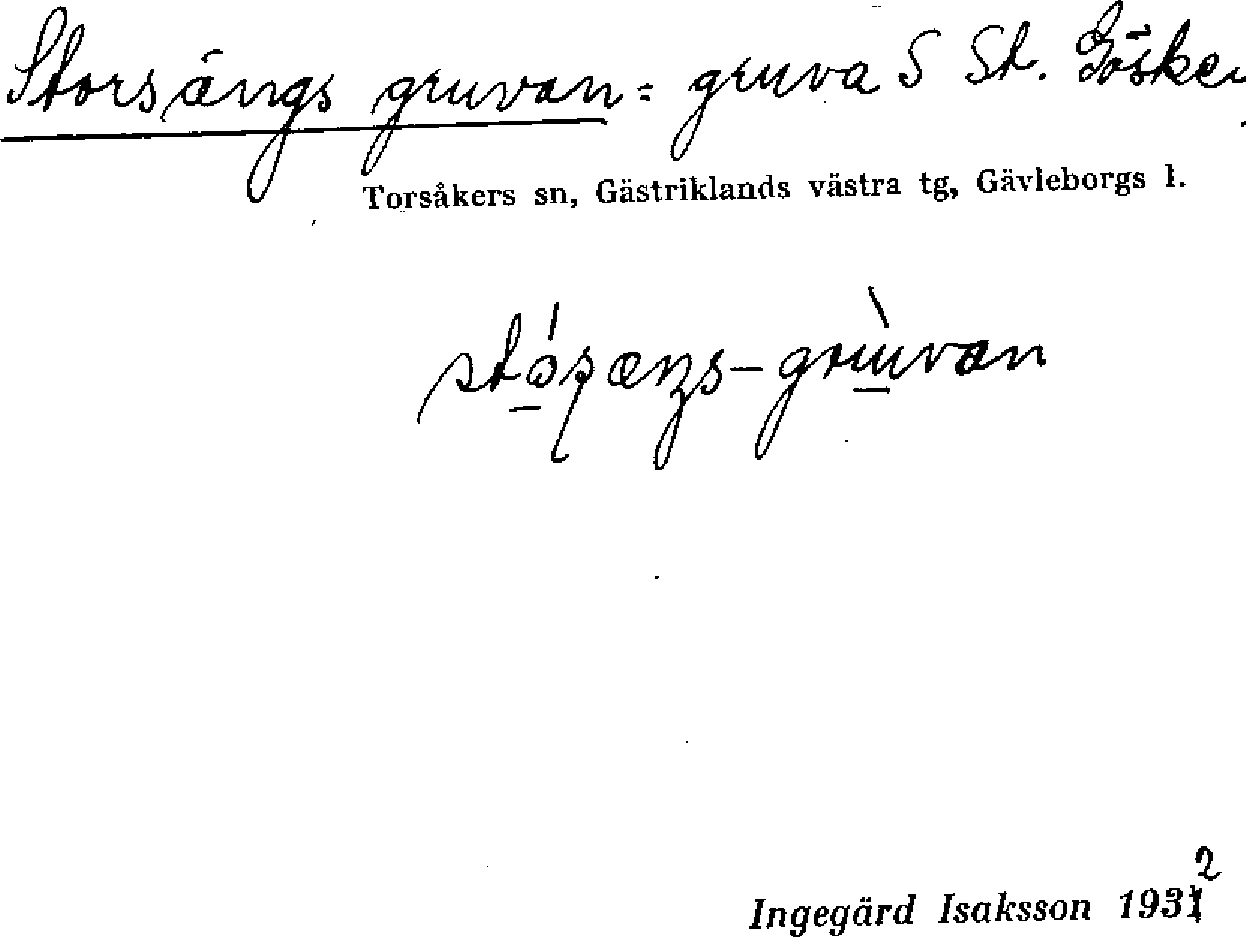 Storsängs gruvan = gruva S St. Gösken
Torsåkers sn, Gästriklands västra tg, Gävleborgs l.
Ingegärd Isaksson 1932